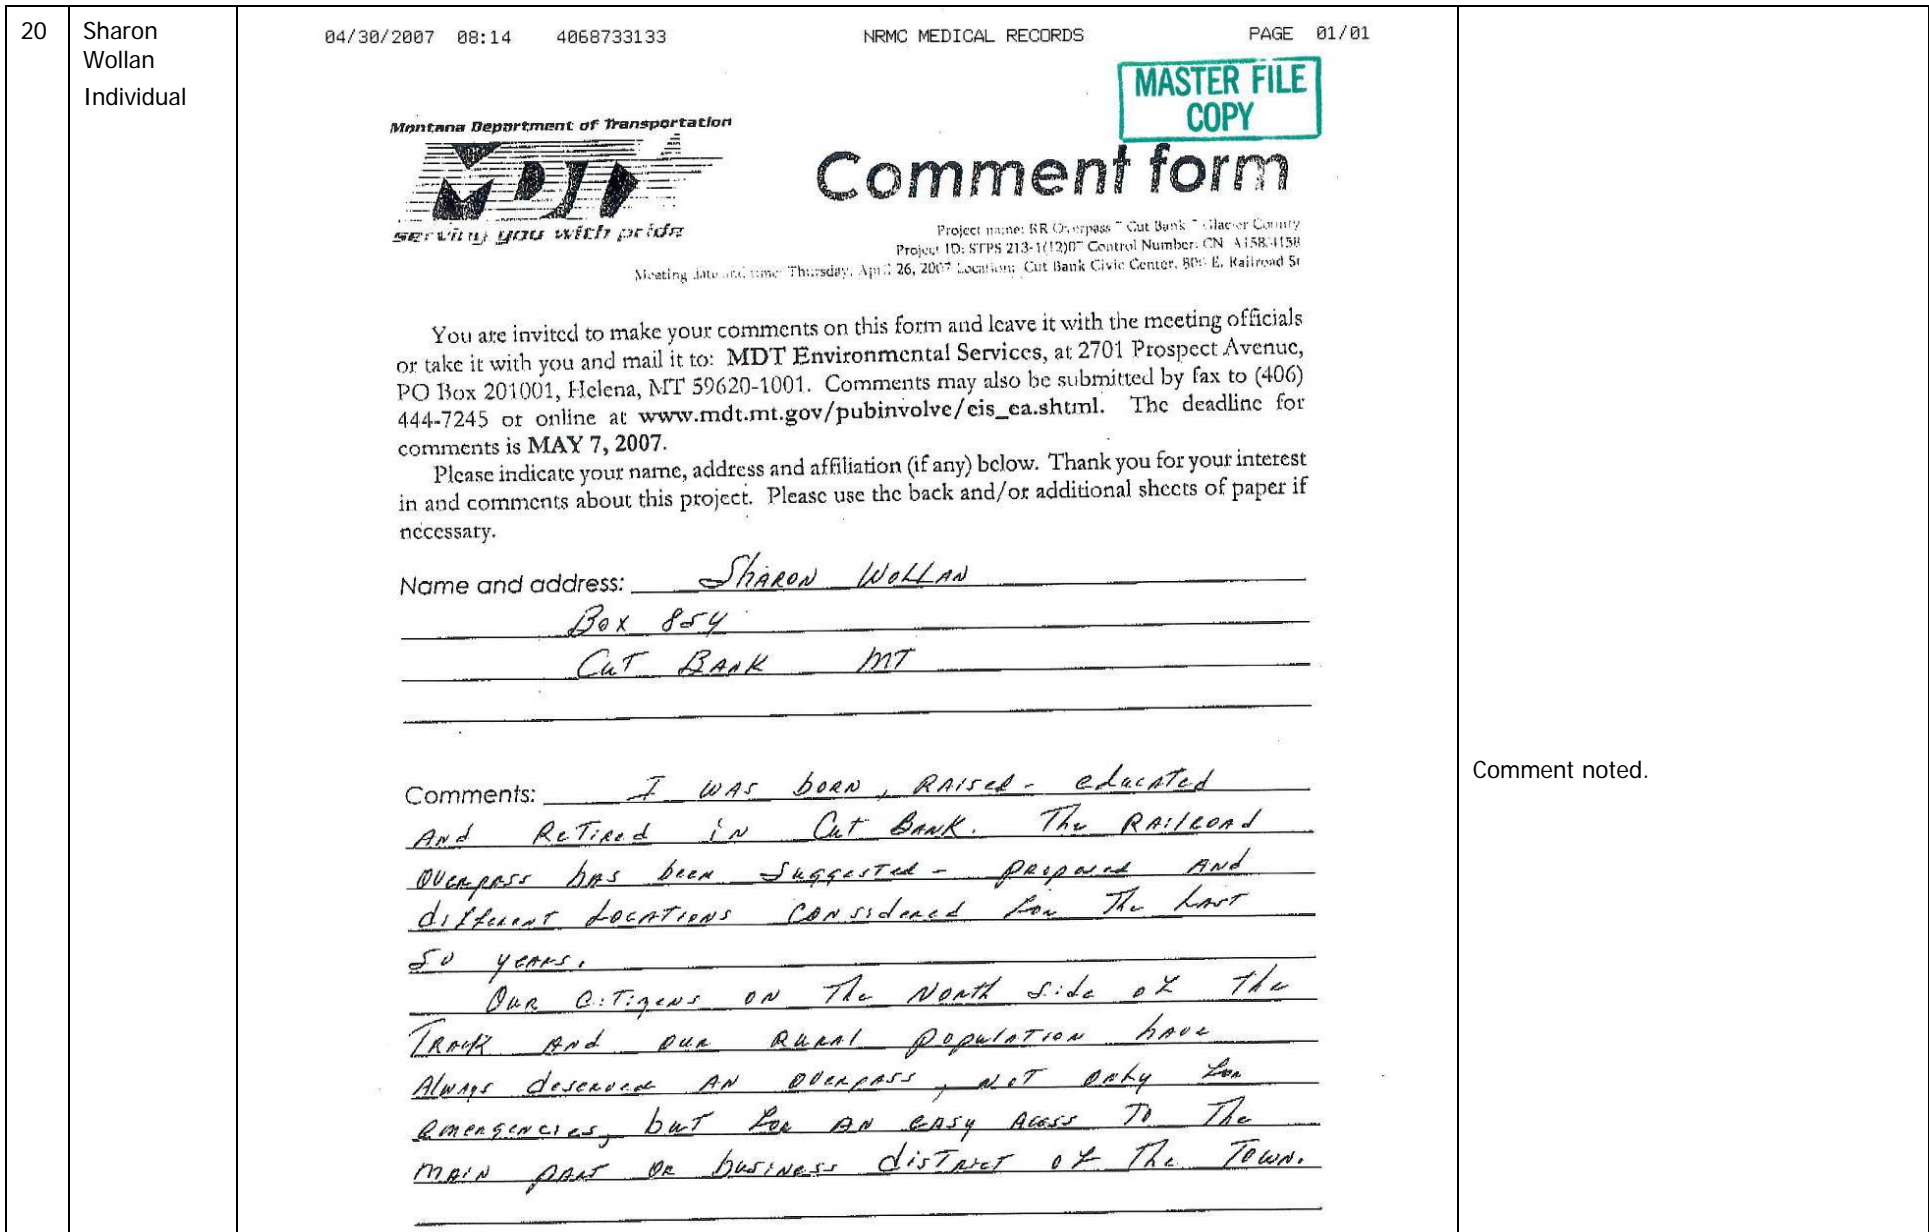 20
Sharon
Wollan
Individual
04/30/2007 08:14 4068733133 NRMC MEDICAL RECORDS PAGE 01/01
MASTER FILE
COPY
Montana Department of Transportation
MDT
serving you with pride
Comment form
Project name: RR Overpass ~ Cut Bank ~ Glacier County
Project ID: STPS 213-1(12)0~ Control Number: CN A158/4158
Meeting date and time: Thursday, April 26, 2007 Location: Cut Bank Civic Center, E. Railroad St
You are invited to make your comments on this form and leave it with the meeting officials
or take it with you and mail it to: MDT Environmental Services, at 2701 Prospect Avenue,
PO Box 201001, Helena, MT 59620-1001. Comments may also be submitted by fax to (406)
444-7245 or online at www.mdt.mt.gov/pubinvolve/eis_ea.shtml. The deadline for
comments is MAY 7, 2007.
Please indicate your name, address and affiliation (if any) below. Thank you for your interest
in and comments about this project. Please use the back and/or additional sheets of paper if
necessary.
Name and address: Sharon Wollan
Box 854
Cut Bank MT
Comments: I was born, raised - educated
and retired in Cut Bank. The Railroad
overpass has been suggested - proposed and
different locations considered for the last
50 years.
Our citizens on the North side of the
Track and our rural population have
always deserved an overpass, not only for
emergencies, but for an easy acess to the
main part or business district of the town.
Comment noted.